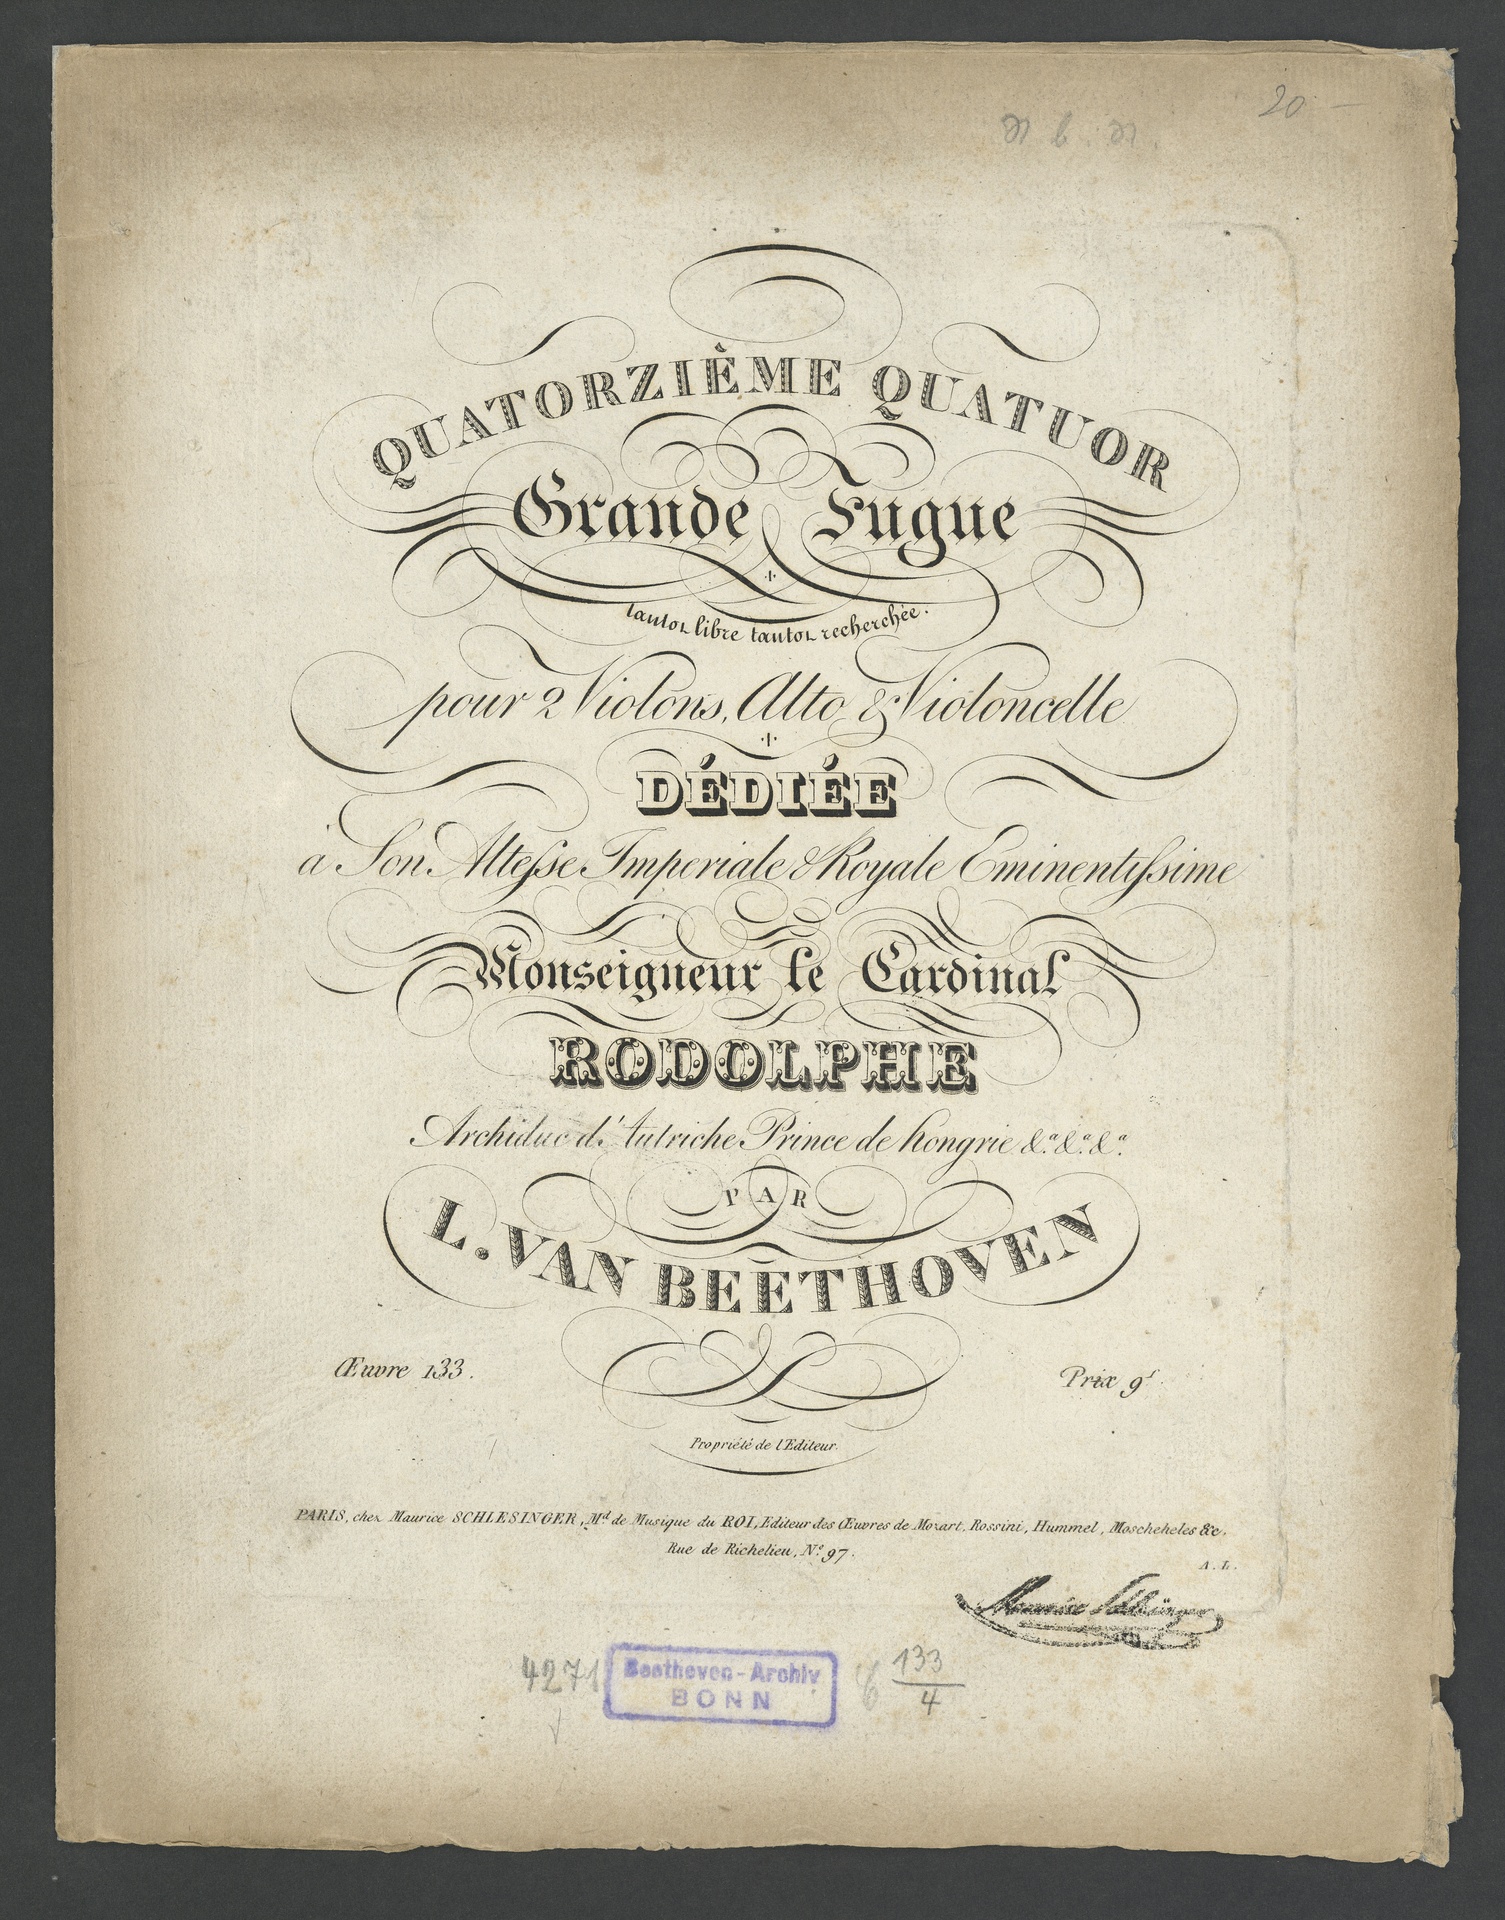 20 —
QUATORZIÈME QUATUOR
Grande Fugue
tantot libre tantot recherchée.
pour 2 Violons, Alto & Violoncelle
DÉDIÉE
à Son Altesse Imperiale & Royale Eminentissime
Monseigneur le Cardinal
RODOLPHE
Archiduc d'Autriche Prince de hongrie &.a &.a &.a
PAR
L. VAN BEETHOVEN
Œuvre 133.
Prix 9f.
Propriété de l'Editeur.
PARIS, chez Maurice SCHLESINGER, Md. de Musique du ROI, Editeur des Œuvres de Mozart, Rossini, Hummel, Moscheheles &c.
Rue de Richelieu, No. 97.
A. L.
Maurice Schlesinger
4271
Beethoven-Archiv
BONN
133
4